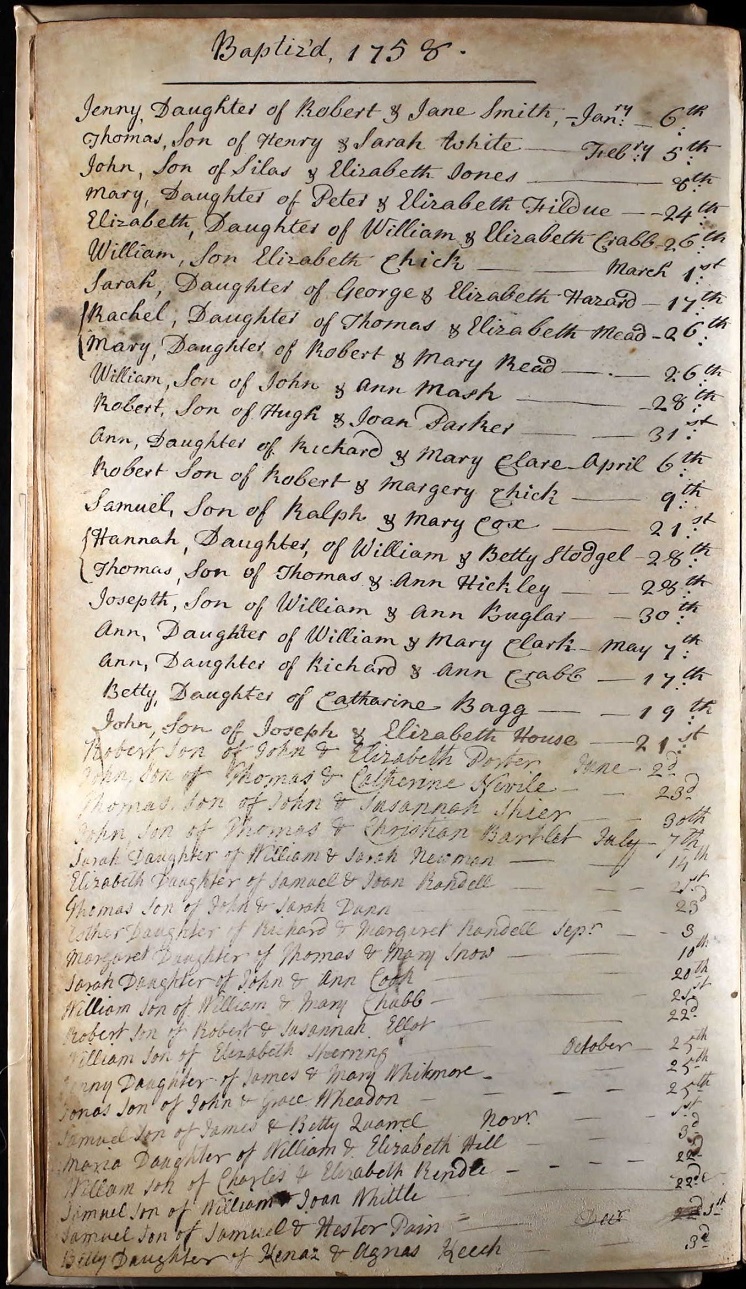 Baptiz'd, 1758.
Jenny, Daughter of Robert & Jane Smith, - Jan.ry — 6.th
Thomas, Son of Henry & Sarah White — Feb.ry 5.th
John, Son of Silas & Elizabeth Jones — 8.th
Mary, Daughter of Peter & Elizabeth Fildue — 24.th
Elizabeth, Daughter of William & Elizabeth Crabb - 26.th
William, Son Elizabeth Chick — March 1.st
Sarah, Daughter of George & Elizabeth Hazard — 17.th
Rachel, Daughter of Thomas & Elizabeth Mead - 26.th
Mary, Daughter of Robert & Mary Read — 26.th
William, Son of John & Ann Mash — 28.th
Robert, Son of Hugh & Joan Parker — 31.st
Ann, Daughter of Richard & Mary Clare - April 6.th
Robert Son of Robert & Margery Chick — 9.th
Samuel, Son of Ralph & Mary Cox — 21.st
Hannah, Daughter, of William & Betty Stodgel - 28.th
Thomas, Son of Thomas & Ann Hickley — 28.th
Joseph, Son of William & Ann Buglar — 30.th
Ann, Daughter of William & Mary Clark - May 7.th
Ann, Daughter of Richard & Ann Crabb — 17.th
Betty, Daughter of Catharine Bagg — 19.th
John, Son of Joseph & Elizabeth House — 21.st
Robert Son of John & Elizabeth Porter June - 2d
John, Son of Thomas & Catherine Nevile — 23d
Thomas, Son of John & Susannah Shier — 30th
John, Son of Thomas & Christian Bartlet July - 7th
Sarah Daughter of William & Sarah Newman — 14th
Elizabeth Daughter of Samuel & Joan Randell — 21st
Thomas Son of John & Sarah Dann — 23d
Esther Daughter of Richard & Margaret Randell Sepr — 3
Margaret Daughter of Thomas & Mary Snow — 10th
Sarah Daughter of John & Ann Cook — 20th
William Son of William & Mary Chabb — 21st
Robert Son of Robert & Susannah Ellot — 22d
William Son of Elizabeth Sherring October — 25th
Jenny Daughter of James & Mary Whitmore — 25th
Jonas Son of John & Grace Wheadon — 25th
Samuel Son of James & Betty Quarrel Novr — 1st
Maria Daughter of William & Elizabeth Hill — 3d
William Son of Charles & Elizabeth Rendle — 22d
Samuel Son of William Joan Whittle — 22d
Samuel Son of Samuel & Hester Pain — Decr 3d
Betty Daughter of Kenaz & Agnas Keech — 3d